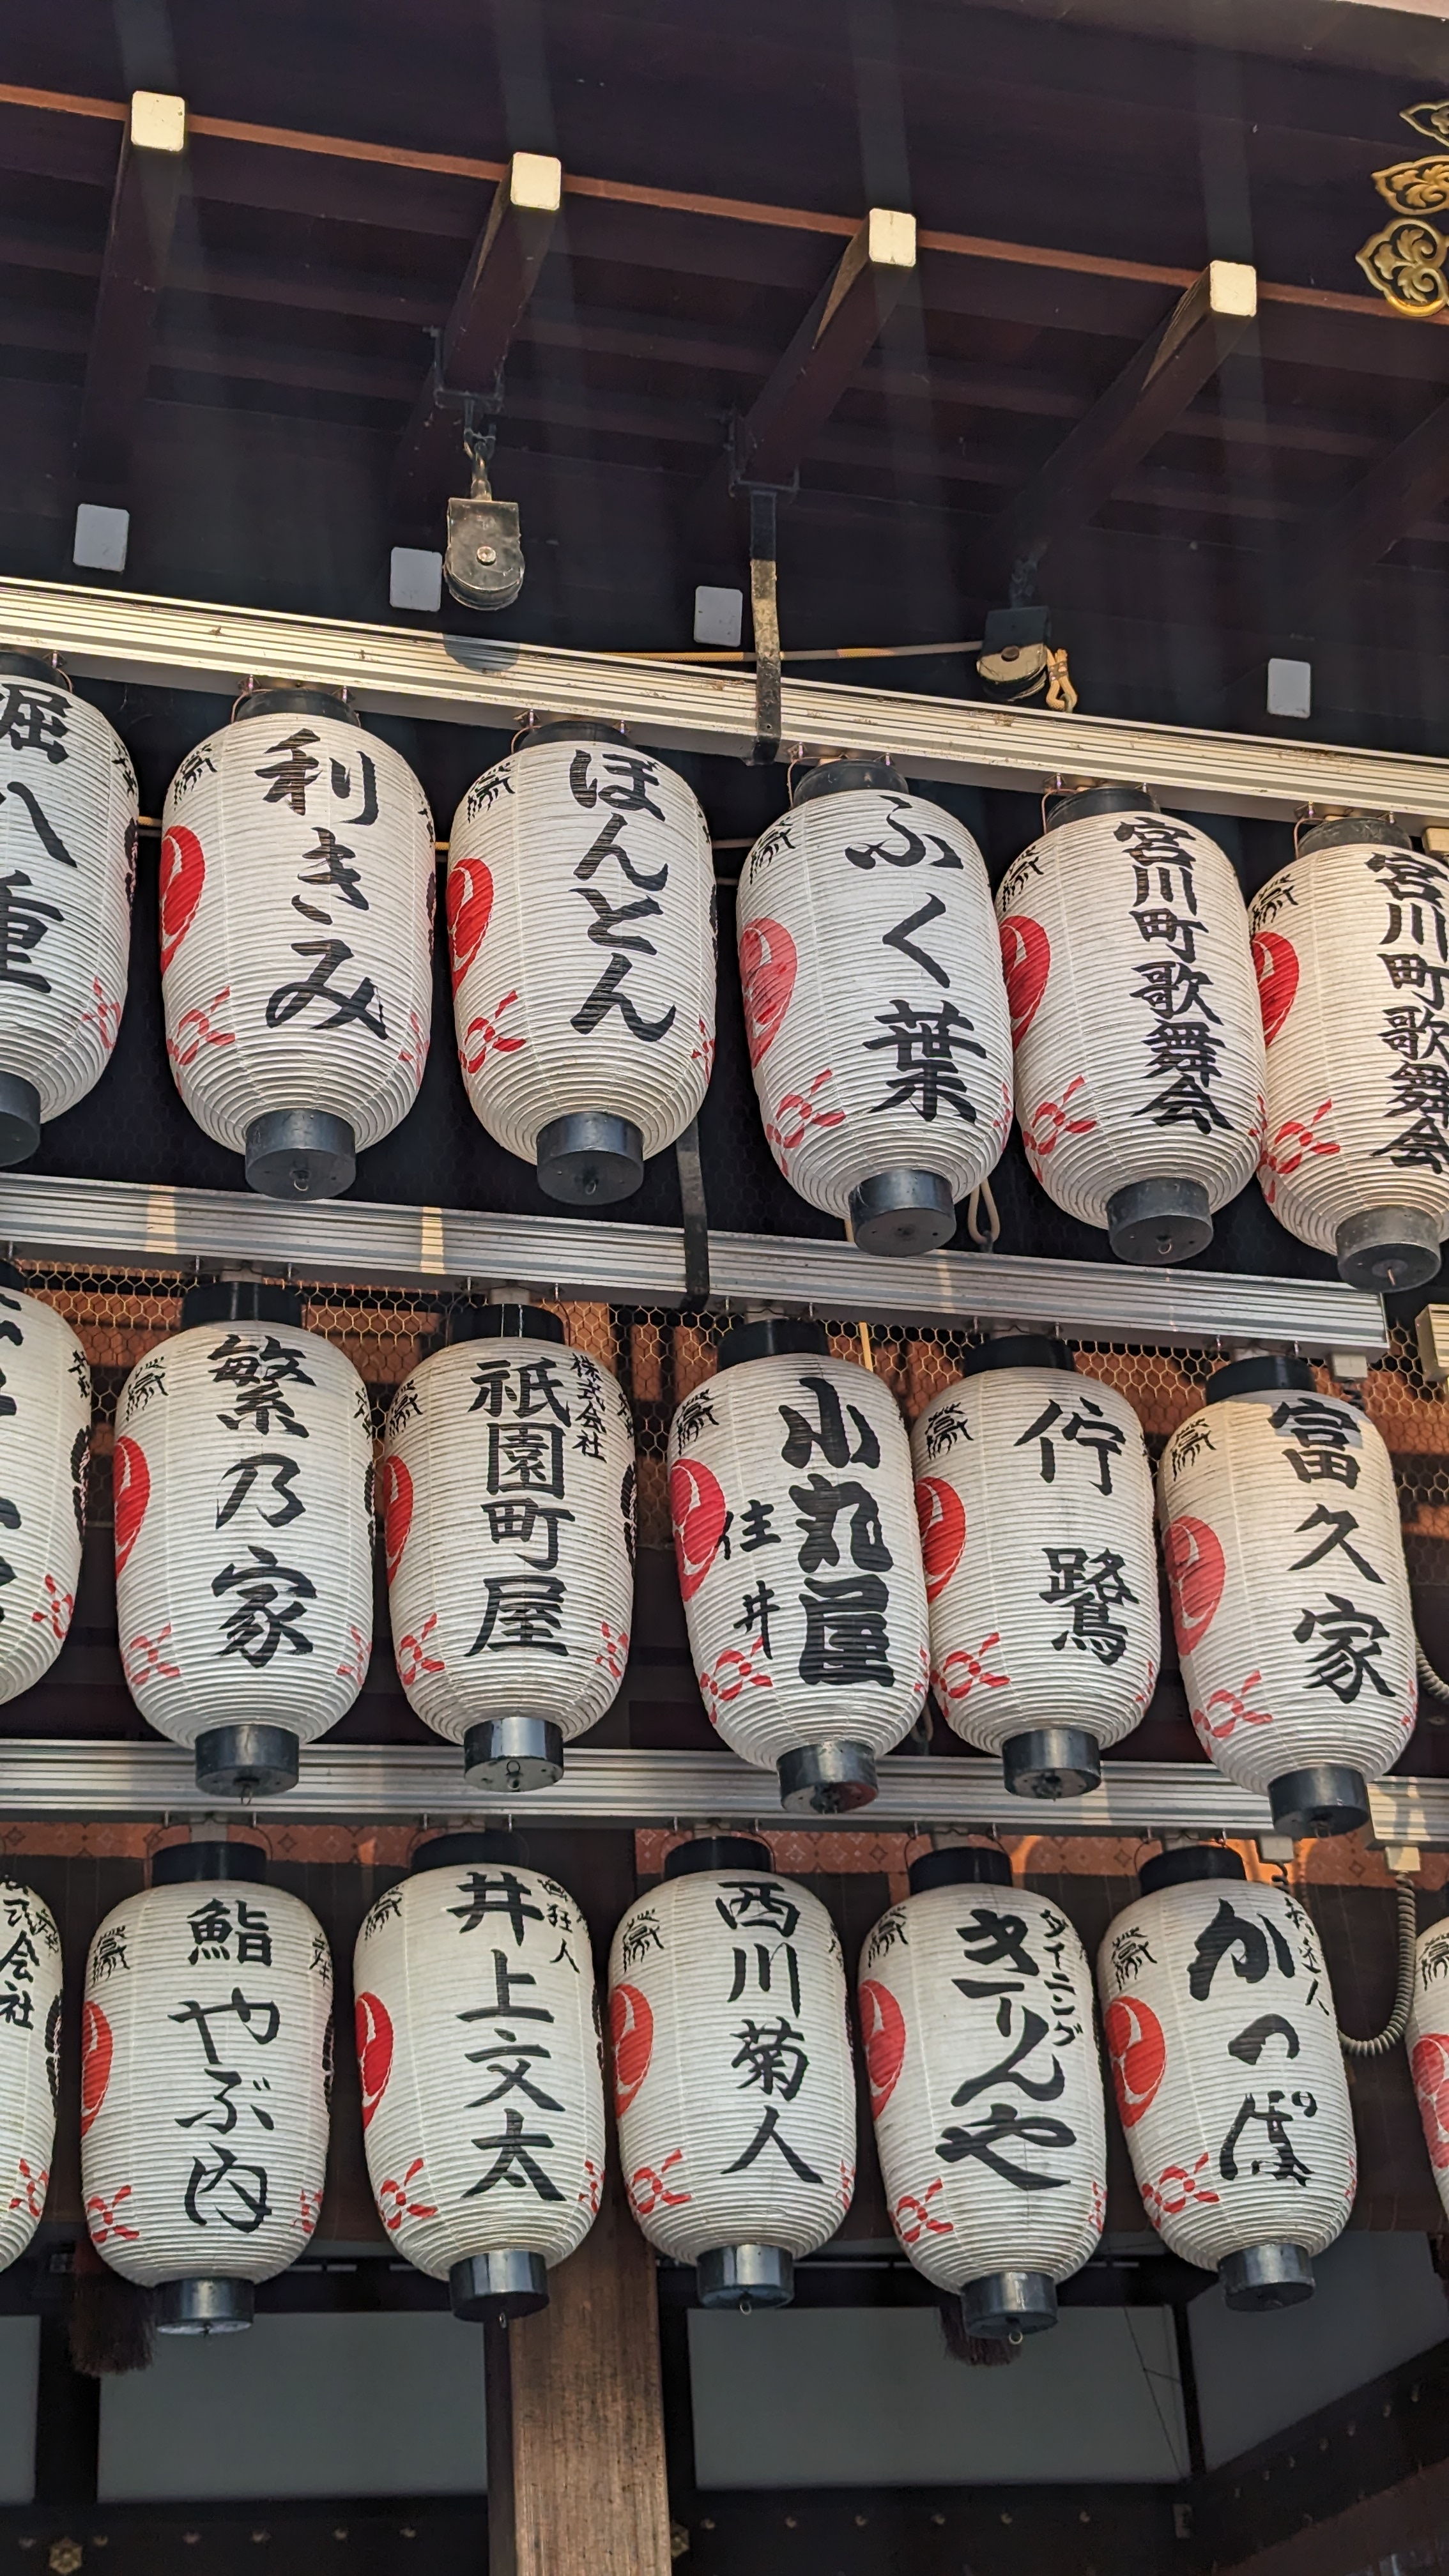 堀八重
利きみ
ぽんとん
ふく葉
宮川町歌舞会
宮川町歌舞会
繁乃家
株式会社
祇園町屋
小丸屋
住井
佇鷺
富久家
式会社
鮨やぶ内
井上文太
画狂人
西川菊人
ダイニング
きりんや
かっぽ